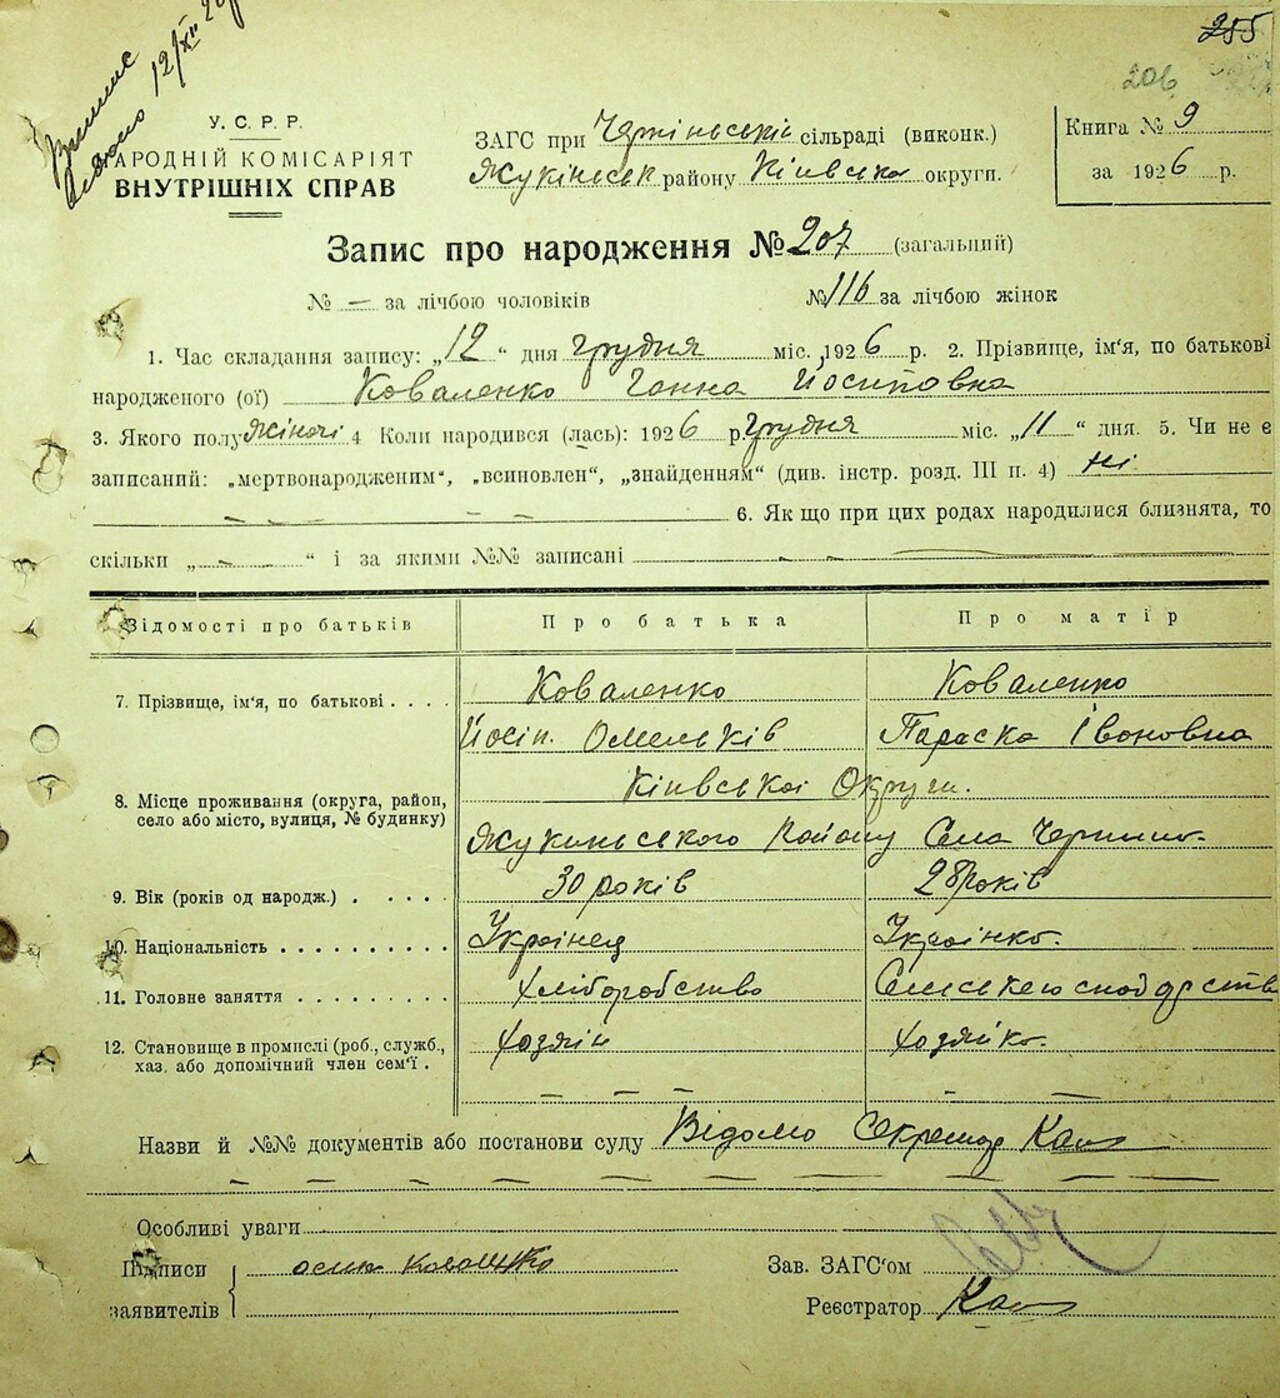 255
206
Випис
видано 12/XII 26
У. С. Р. Р.
НАРОДНІЙ КОМІСАРІЯТ
ВНУТРІШНІХ СПРАВ
ЗАГС при Чернінській сільраді (виконк.)
Жукінськ району Київська округи.
Книга № 9
за 1926 р.
Запис про народження № 207 (загальний)
№ — за лічбою чоловіків
№ 116 за лічбою жінок
1. Час складання запису: „12“ дня Грудня міс. 1926 р. 2. Прізвище, ім'я, по батькові
народженого (ої) Коваленко Ганна Йосиповна
3. Якого полу Жіночі 4 Коли народився (лась): 1926 р. Грудня міс. „11“ дня. 5. Чи не є
записаний: „мертвонародженим“, „всиновлен“, „знайденням“ (див. інстр. розд. III п. 4) Ні
6. Як що при цих родах народилися близнята, то
скільки „ — “ і за якими №№ записані
Відомості про батьків Про батька Про матір
7. Прізвище, ім'я, по батькові Коваленко Коваленко
Йосіп. Омельків Параска Івановна
8. Місце проживання (округа, район, село або місто, вулиця, № будинку) Київської Округи.
Жукинського Району Села Чернино.
9. Вік (років од народж.) 30 років 28 років
10. Національність Українец Українка.
11. Головне заняття Хліборобство
12. Становище в промислі (роб., служб., хаз. або допомічний член сем'ї. Хозяїн Хозяйка.
Назви й №№ документів або постанови суду Відомо Секретар
Особливі уваги
Підписи
заявителів
Зав. ЗАГС'ом
Реєстратор